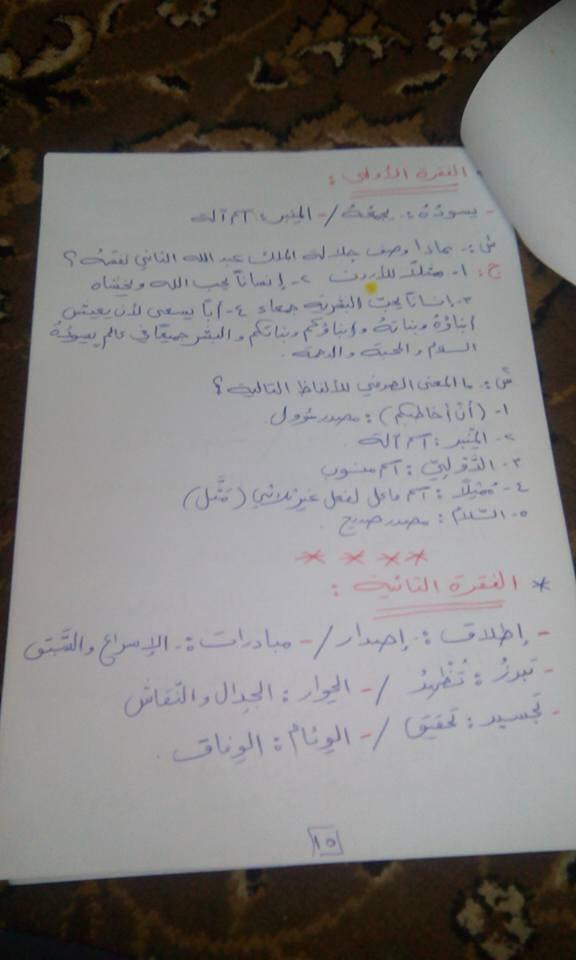 * الفقرة الأولى :
- يسودُهُ : يعمّهُ /- المِنبر : اسم آلة
سَ : بماذا وصف جلالة الملك عبد الله الثاني نفسَهُ ؟
ج : ١- ممثلاً للأردن ٢- إنساناً يحب الله ويخشاه
٣- إنساناً يحبّ البشرية جمعاء ٤- أباً يسعى لأن يعيش
أبناؤهُ وبناتهُ وأبناؤكم وبناتكم والبشر جميعاً في عالم يسودُهُ
السلام والمحبة والرحمة .
سَ : ما المعنى الصرفي للألفاظ التالية ؟
١- (أنْ أخاطبكم) : مصدر مؤول
٢- المِنْبر : اسم آلة
٣- الدَّوْليّ : اسم منسوب
٤- مُمثِّلاً : اسم فاعل لفعل غير ثلاثي (مَثَّل)
٥- السّلام : مصدر صريح
* * * *
* الفقرة الثانية :
- إطلاق : إصدار /- مبادرات : الإسراع والسَّبق
- تبرزُ : تُظْهِرُ /- الحِوار : الجِدال والنّقاش
- تجسيد : تحقيق /- الوِئام : الوِفاق .
١٥